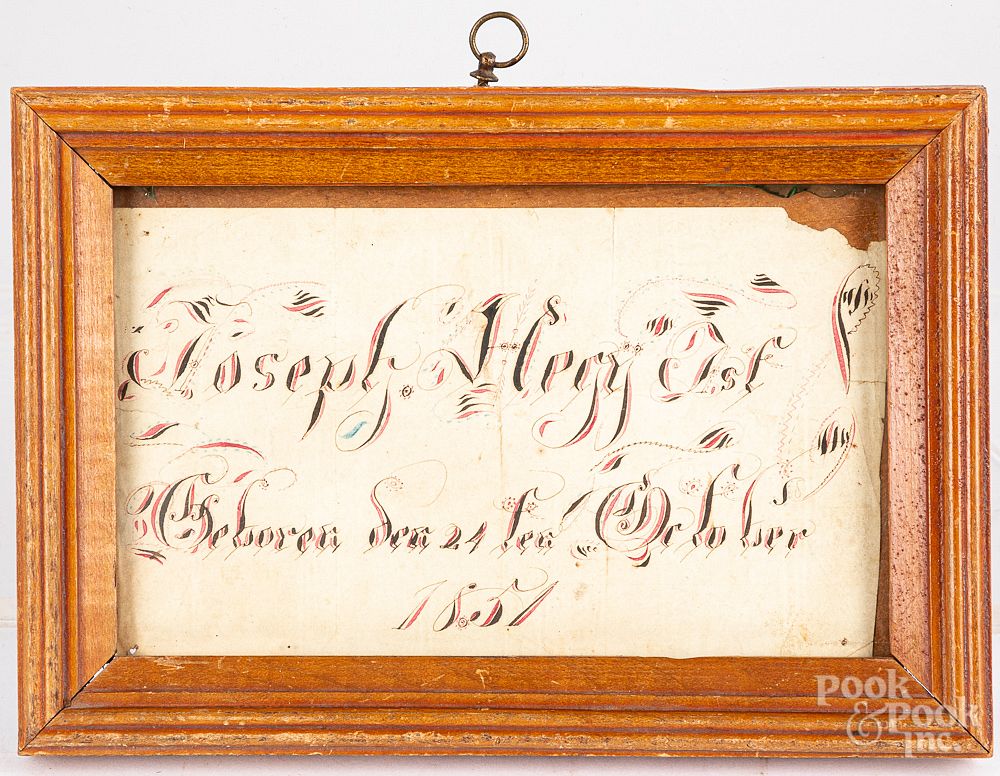 Joseph Hegÿ Ist
Geboren den 24 ten October
1851
POOK
& POOK
INC.